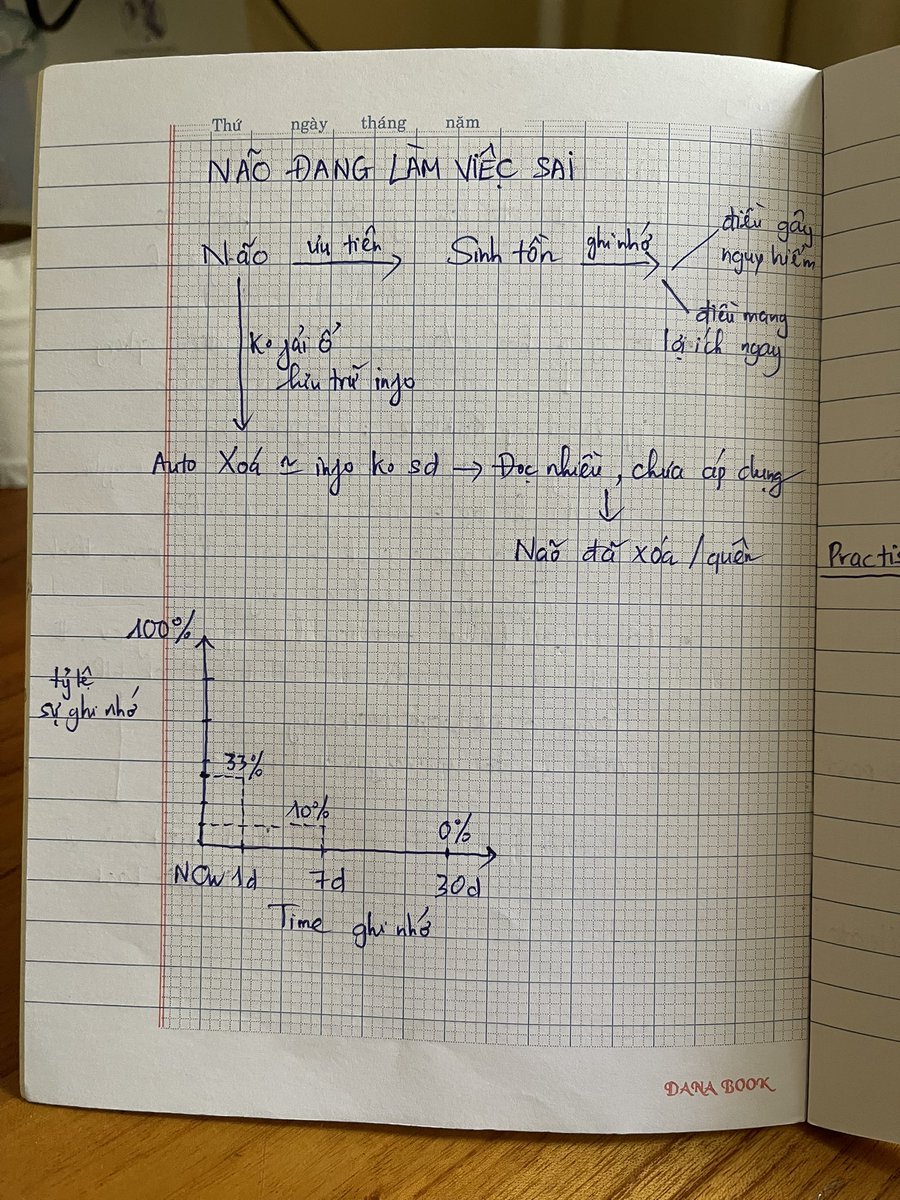 Thứ ngày tháng năm
NÃO ĐANG LÀM VIỆC SAI
Não ưu tiên Sinh tồn ghi nhớ
điều gây
nguy hiểm
điều mang
lợi ích ngay
Ko phải ổ
lưu trữ info
Auto Xoá ~ info ko sd → Đọc nhiều, chưa áp dụng
Não đã xóa / quên
Practis
100%
tỷ lệ
sự ghi nhớ
33%
10%
0%
NOW 1d 7d 30d
Time ghi nhớ
DANA BOOK